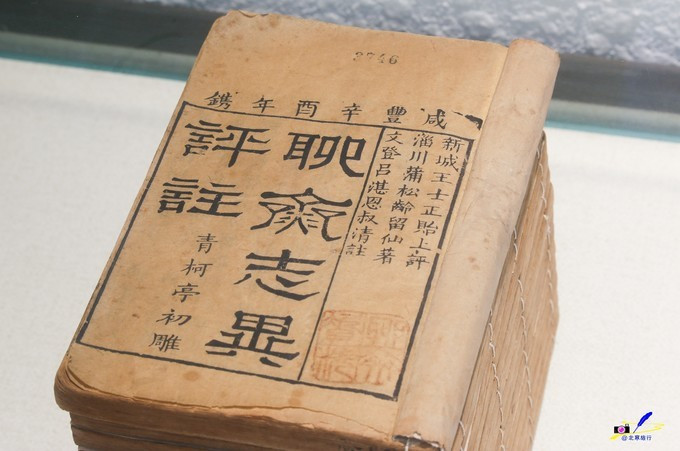 2746
咸豐辛酉年鐫
新城王士正貽上評
淄川蒲松齡留仙著
文登呂湛恩叔清註
聊齋志異
評註
青柯亭初雕
@北寒旅行